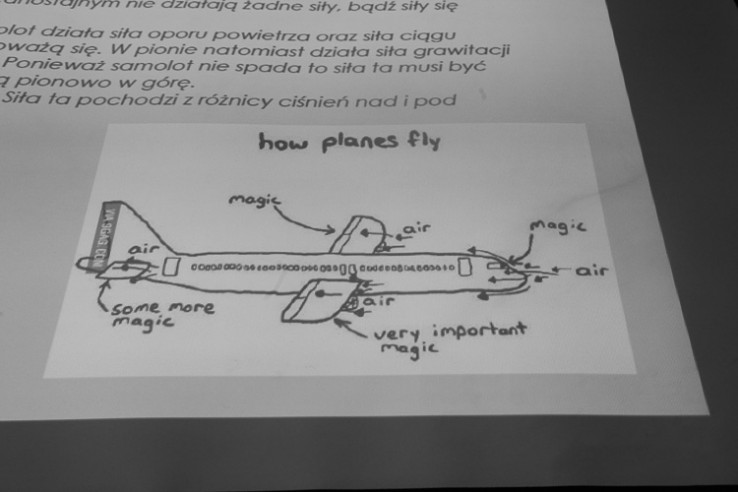 nie działają żadne siły, bądź siły się
działa siła oporu powietrza oraz siła ciągu
się. W pionie natomiast działa siła grawitacji
Ponieważ samolot nie spada to siła ta musi być
pionowo w górę.
Siła ta pochodzi z różnicy ciśnień nad i pod
how planes fly
magic
air
magic
air
air
some more
magic
air
very important
magic